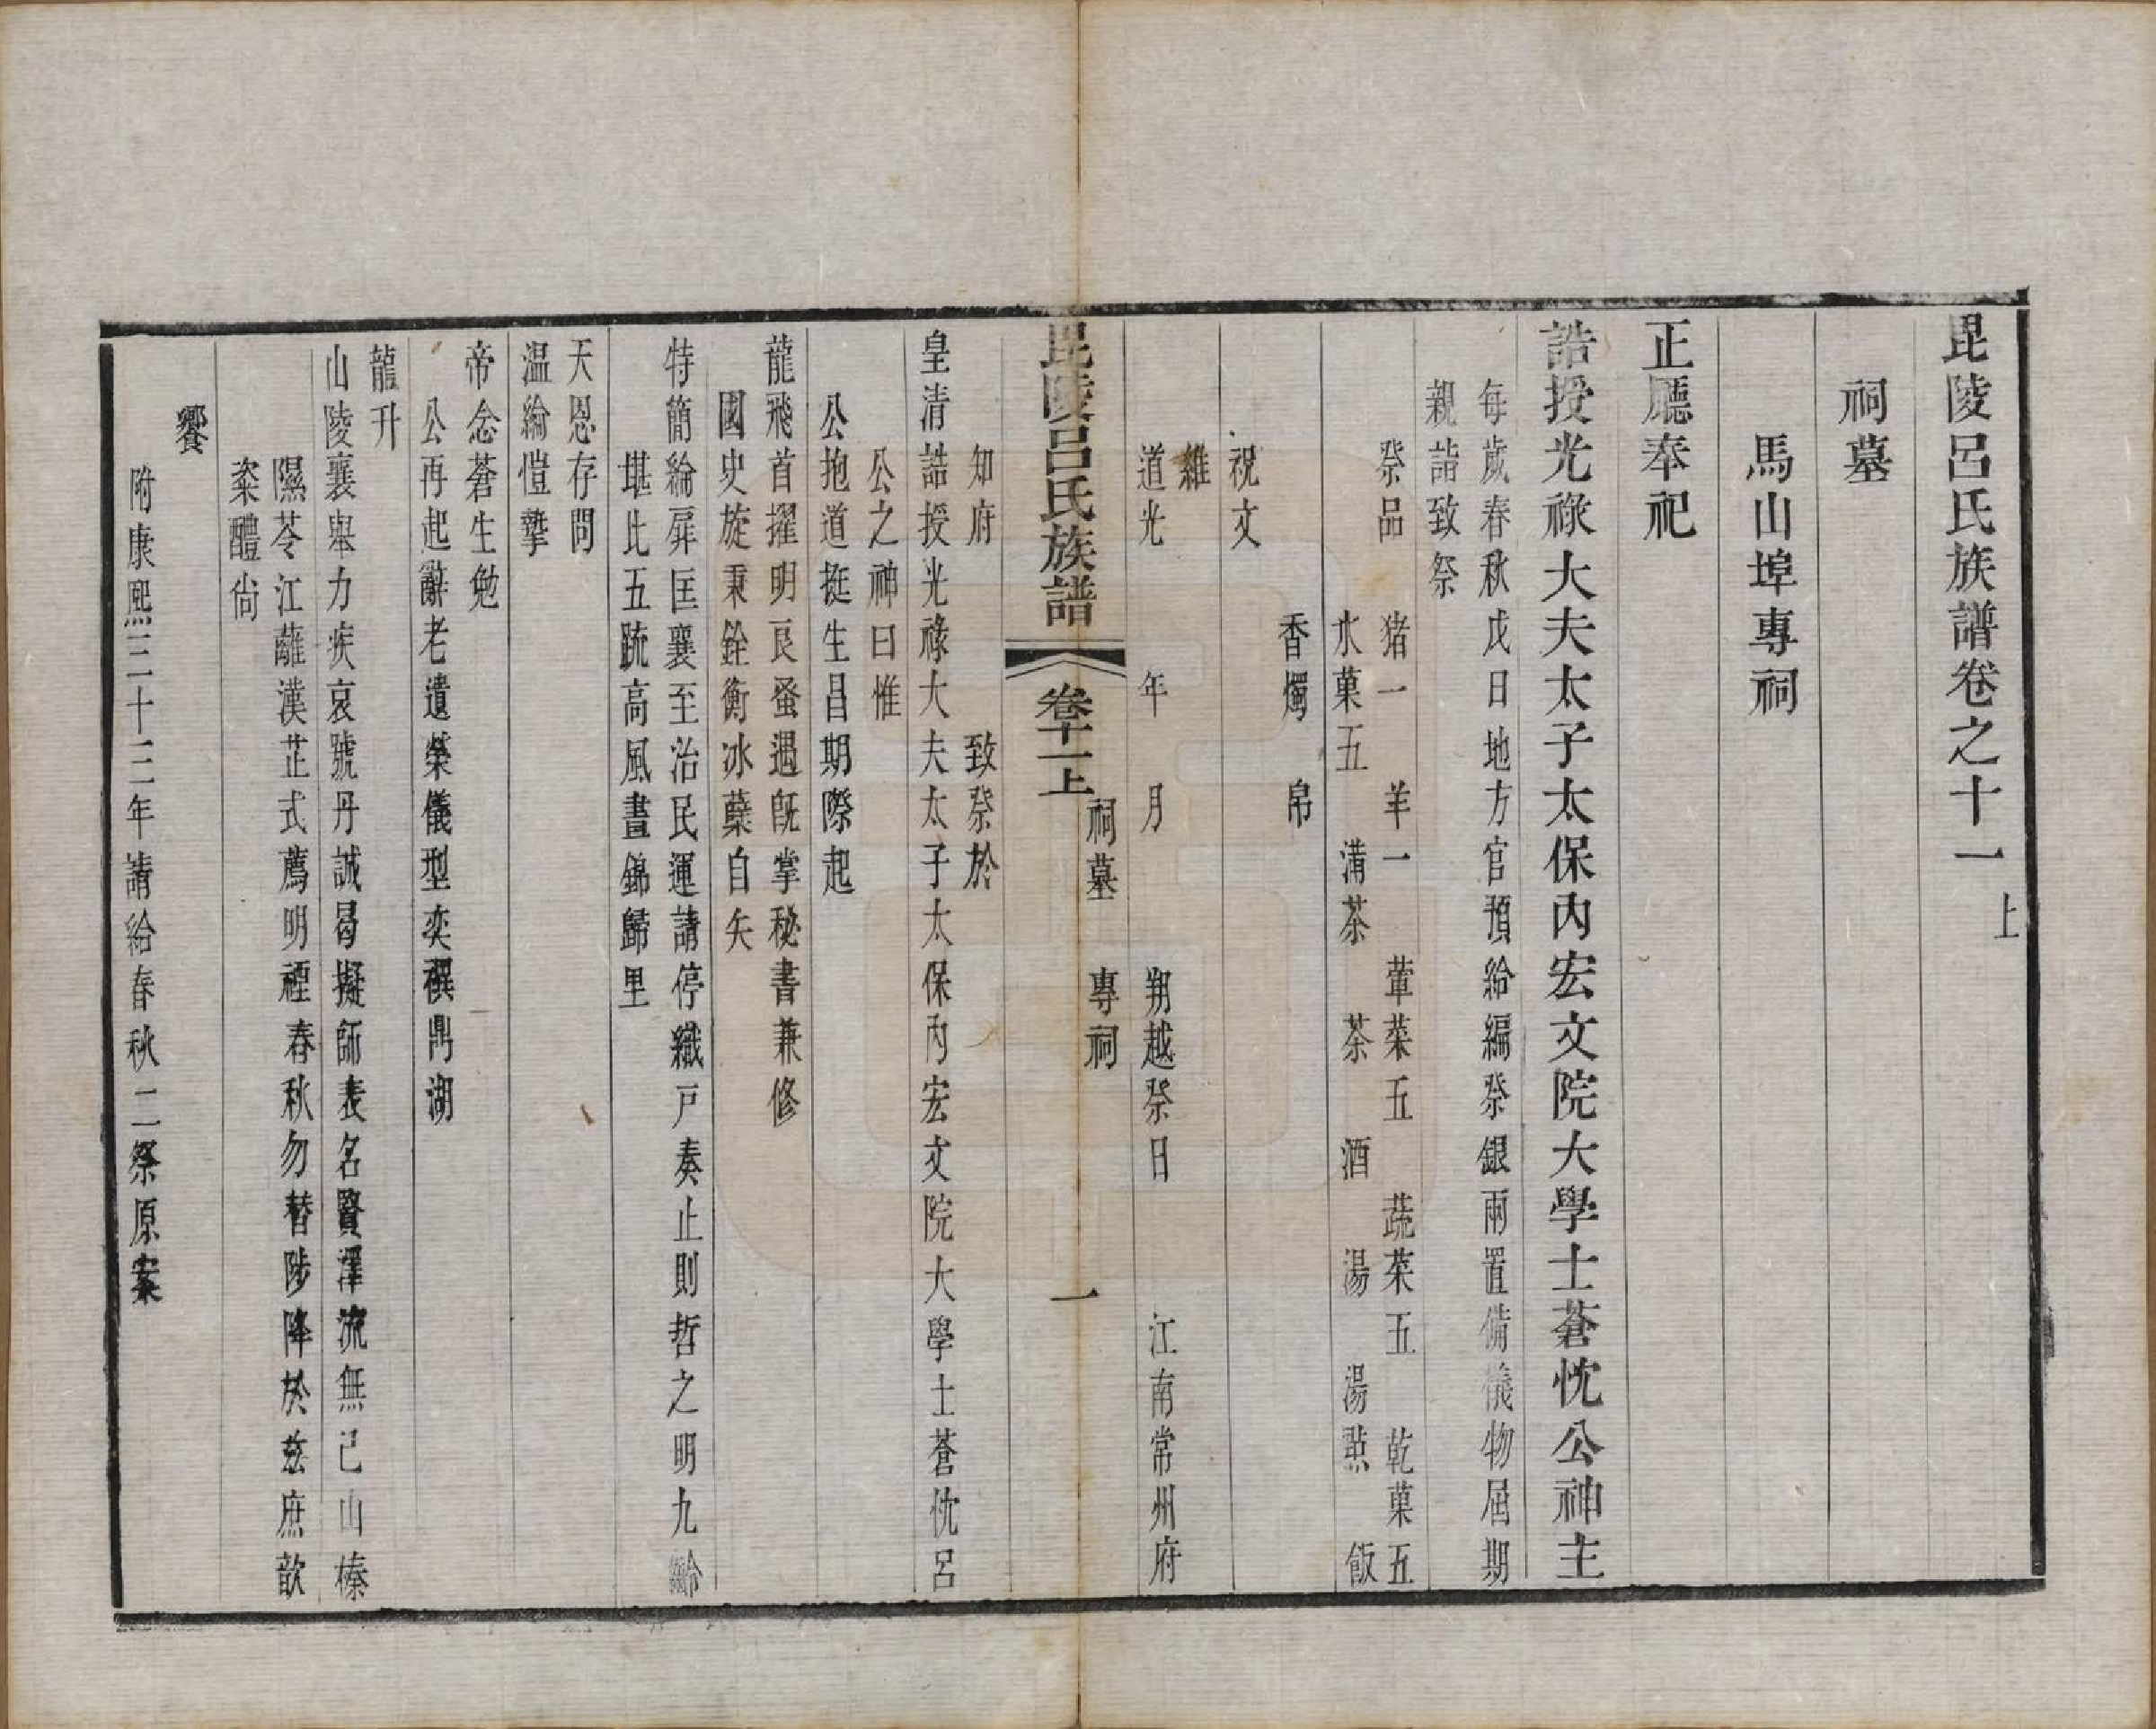 毘陵呂氏族譜卷之十一上
祠墓
馬山埠專祠
正廳奉祀
誥授光祿大夫太子太保內宏文院大學士蒼忱公神主
每歲春秋戊日地方官預給編祭銀兩置備儀物屆期
親詣致祭
祭品 猪一 羊一 葷菜五 蔬菜五 乾菓五
水菓五 清茶 茶 酒 湯 湯㸃 飯
香燭 帛
祝文
維
道光 年 月 朔越祭日 江南常州府
毘陵呂氏族譜 卷十一上 祠墓 專祠 一
知府 致祭於
皇清誥授光祿大夫太子太保內宏文院大學士蒼忱呂
公之神曰惟
公抱道挺生昌期際起
龍飛首擢明良蚤遇旣掌秘書兼修
國史旋秉銓衡冰蘗自矢
特簡綸扉匡襄至治民運請停織戸奏止則哲之明九齡
堪比五疏高風晝錦歸里
天恩存問
温綸愷摯
帝念蒼生勉
公再起辭老遺榮儀型奕禩鼎湖
龍升
山陵襄舉力疾哀號丹誠曷擬師表名賢澤流無已山榛
隰苓江蘺漢芷式薦明禋春秋勿替陟降於茲庶歆
粢醴尙
饗
附康熙三十三年請給春秋二祭原案